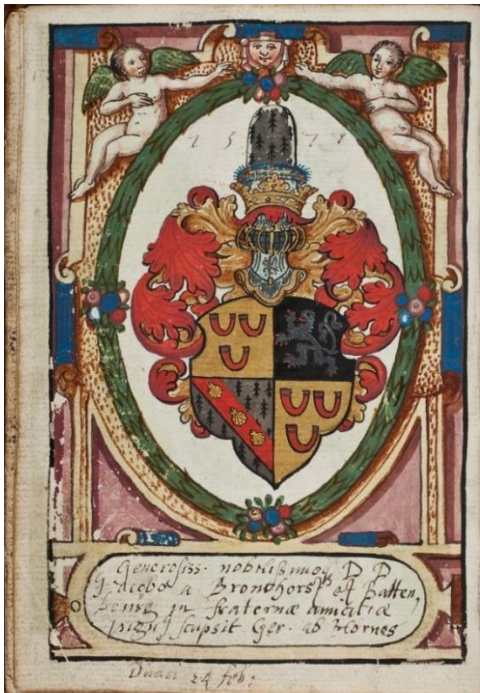 1579
Generosiss. nobilissimoq D D
Jacobo a Bronkhorst et Batten,
in fraternæ amicitiæ
scripsit Ger. ab Hornes
Duaci 24 feb: